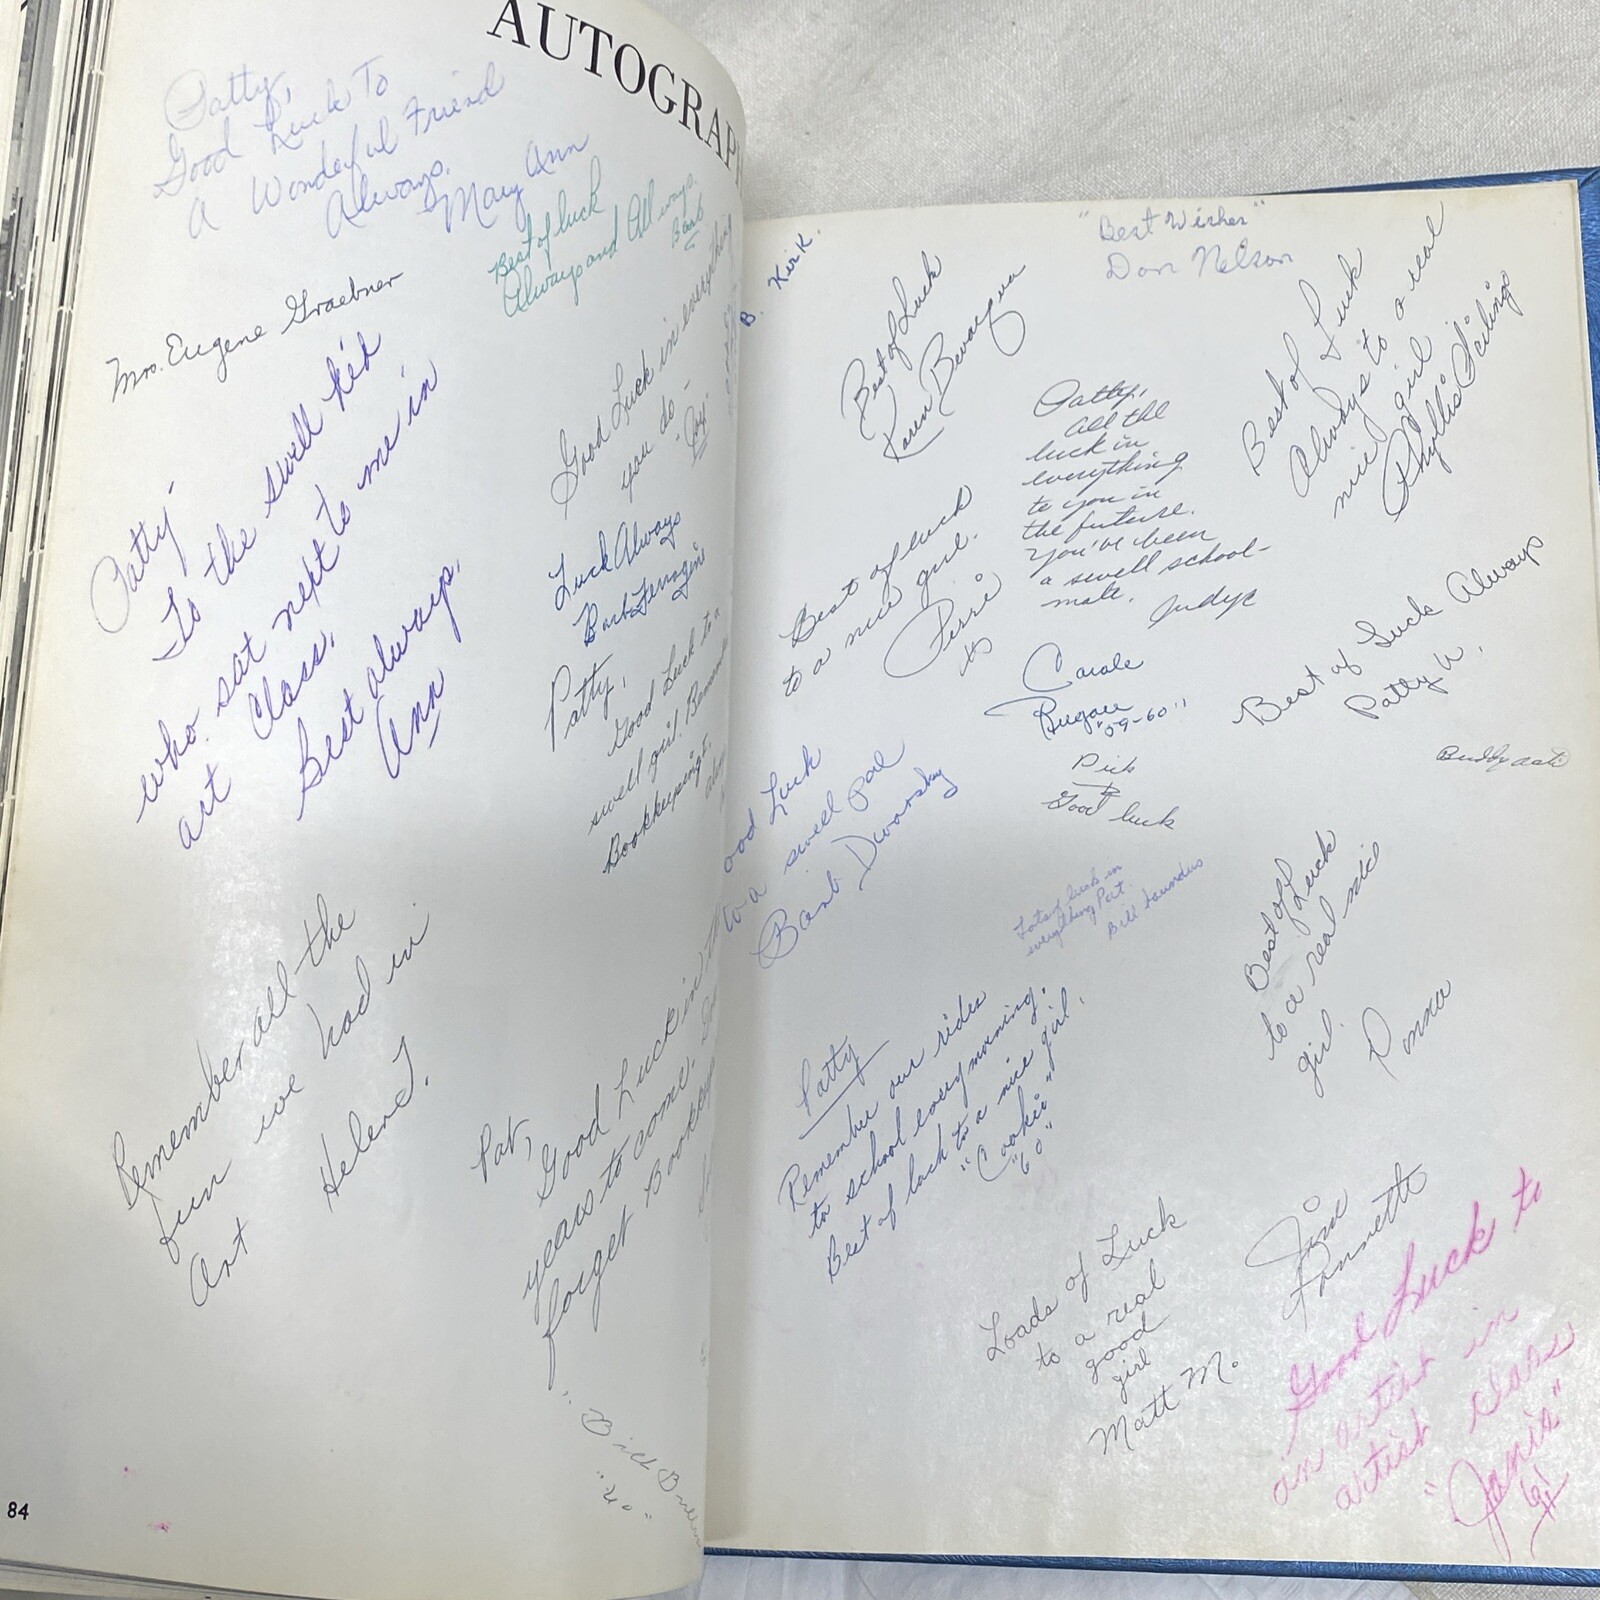 AUTOGRAP
Patty,
Good Luck To
A Wonderful Friend
Always.
Mary Ann
Best of luck
Always and Always.
Barb
Mrs. Eugene Graebner
Good Luck in everything
you do -
"Joy"
Patty -
To the swell kid
who sat next to me in
art Class.
Best always,
Ann
Luck Always
Barb
Patty,
Good Luck to a
swell girl. Remem
Bookkeeping
Remember all the
fun we had in
Art
Helen
Pat,
Good Luck in th
years to come.
forget Bookkeep
"Bill
"60"
84
B. Kirk.
"Best Wishes"
Don Nelson
Best of Luck
Karen Bevacqua
Best of Luck
Always to a real
nice girl
Phyllis
Patty,
all the
luck in
everything
to you in
the future.
You've been
a swell school-
mate.
Judy
Best of luck
to a nice girl.
Carole
"59-60"
Dick
Good luck
Best of Luck Always
Patty W.
Buddy
ood Luck
to a sweet pal
Barb Dworsky
Lots of luck in
everything Pat
Bill Saunders
Best of Luck
to a real nice
girl.
Donna
Patty
Remember our rides
to school every morning.
Best of luck to a nice girl.
"Cookie"
"60"
Loads of Luck
to a real
good
girl
Matt M.
Jim
Good Luck to
an artist in
artist class
"Janis"
61